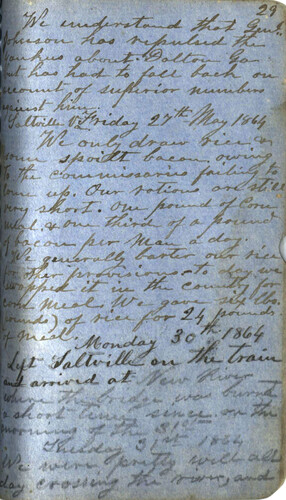 29
We understand that Genl.
Johnson has repulsed the
Yankees about Dalton Ga
but has had to fall back on
account of superior numbers
against him.
Saltville V Friday 27th May 1864
We only draw rice, &
some spoilt bacon, owing
to the commissaries failing to
come up. Our rations are still
very short. One pound of Corn
Meal, & one third of a pound
of bacon per Man a day.
We generally barter our rice
for other provisions. To day we
swapped it in the country for
corn Meal. We gave six lbs.
(pounds) of rice for 24 pounds
of meal.
Monday 30th 1864
Left Saltville on the train
and arrived at New River
where the bridge was burnt
a short time since on the
morning of the 31st
Tuesday 31st 1864
We were pretty well all
day crossing the river, and